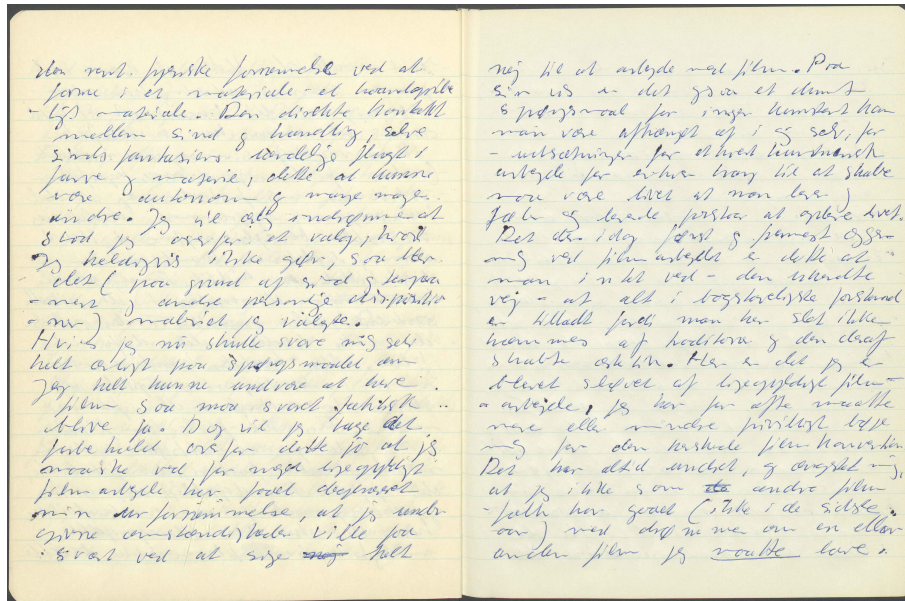 den rent fysiske fornemmelse ved at
forme i et materiale - et haandgribe
- ligt materiale. Den direkte kontakt
mellem sind og handling, selve
sindsfantasiens flugt i
farve og materie, dette at kunne
være autonom og mange
andre. Jeg vil ærlig indrømme at
stod jeg overfor et valg, hvad
jeg heldigvis ikke gør, saa blev
det (paa grund af sind og tempera
- ment og andre personlige dispositio
- ner) maleriet jeg valgte.
Hvis jeg nu skulle svare mig selv
helt ærligt paa spørgsmaalet om
jeg helt kunne undvære at lave
film saa maa svaret faktisk
blive ja. Dog vil jeg tage det
forbehold overfor dette ja at jeg
maaske ved for meget ligegyldigt
filmarbejde har faaet
min urfornemmelse, at jeg under
givne omstændigheder ville faa
svært ved at sige nej helt
nej til at arbejde med film. Paa
sin vis er det ogsaa et dumt
spørgsmaal for ingen kunstart kan
man være afhængt af i sig selv, for
- udsætningen for ethvert kunstnerisk
arbejde for enhver trang til at skabe
maa være livet at man lever)
føler og levende forstaar at opleve livet.
Det der idag først og fremmest ægger
mig ved filmarbejdet er dette at
man intet ved - den ubetraadte
vej - at alt i bogstaveligste forstand
er tilladt fordi man her slet ikke
hæmmes af traditioner og den deraf
skabte æstetik. Her er det jeg er
blevet sløvet af ligegyldigt film-
- arbejde, jeg har for ofte maattet
mere eller mindre frivilligt bøje
mig for den herskende filmkonvention
Det har altid undret, og ængstet mig,
at jeg ikke som de andre film
- folk har gaaet (ikke i de sidste
aar) med drømme om en eller
anden film jeg maatte lave.